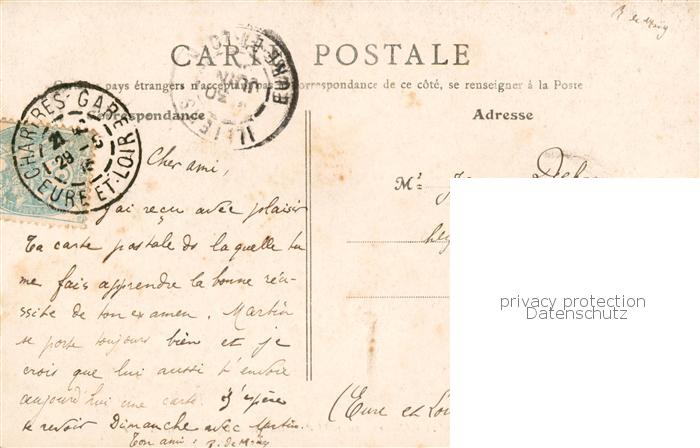 CARTE POSTALE
pays étrangers n'acceptant pas correspondance de ce côté, se renseigner à la Poste
Correspondance
Adresse
CHARTRES-GARE
EURE-ET-LOIR
JUIN
EURE-ET-LOIR
Cher ami,
J'ai reçu avec plaisir
ta carte postale de laquelle tu
me fais apprendre la bonne réu-
ssite de ton examen. Martin
se porte toujours bien et je
crois que lui aussi t'envoie
aujourd'hui une carte. J'espère
te revoir Dimanche avec Martin.
Ton ami :
Mr
(Eure et Loi
privacy protection
Datenschutz